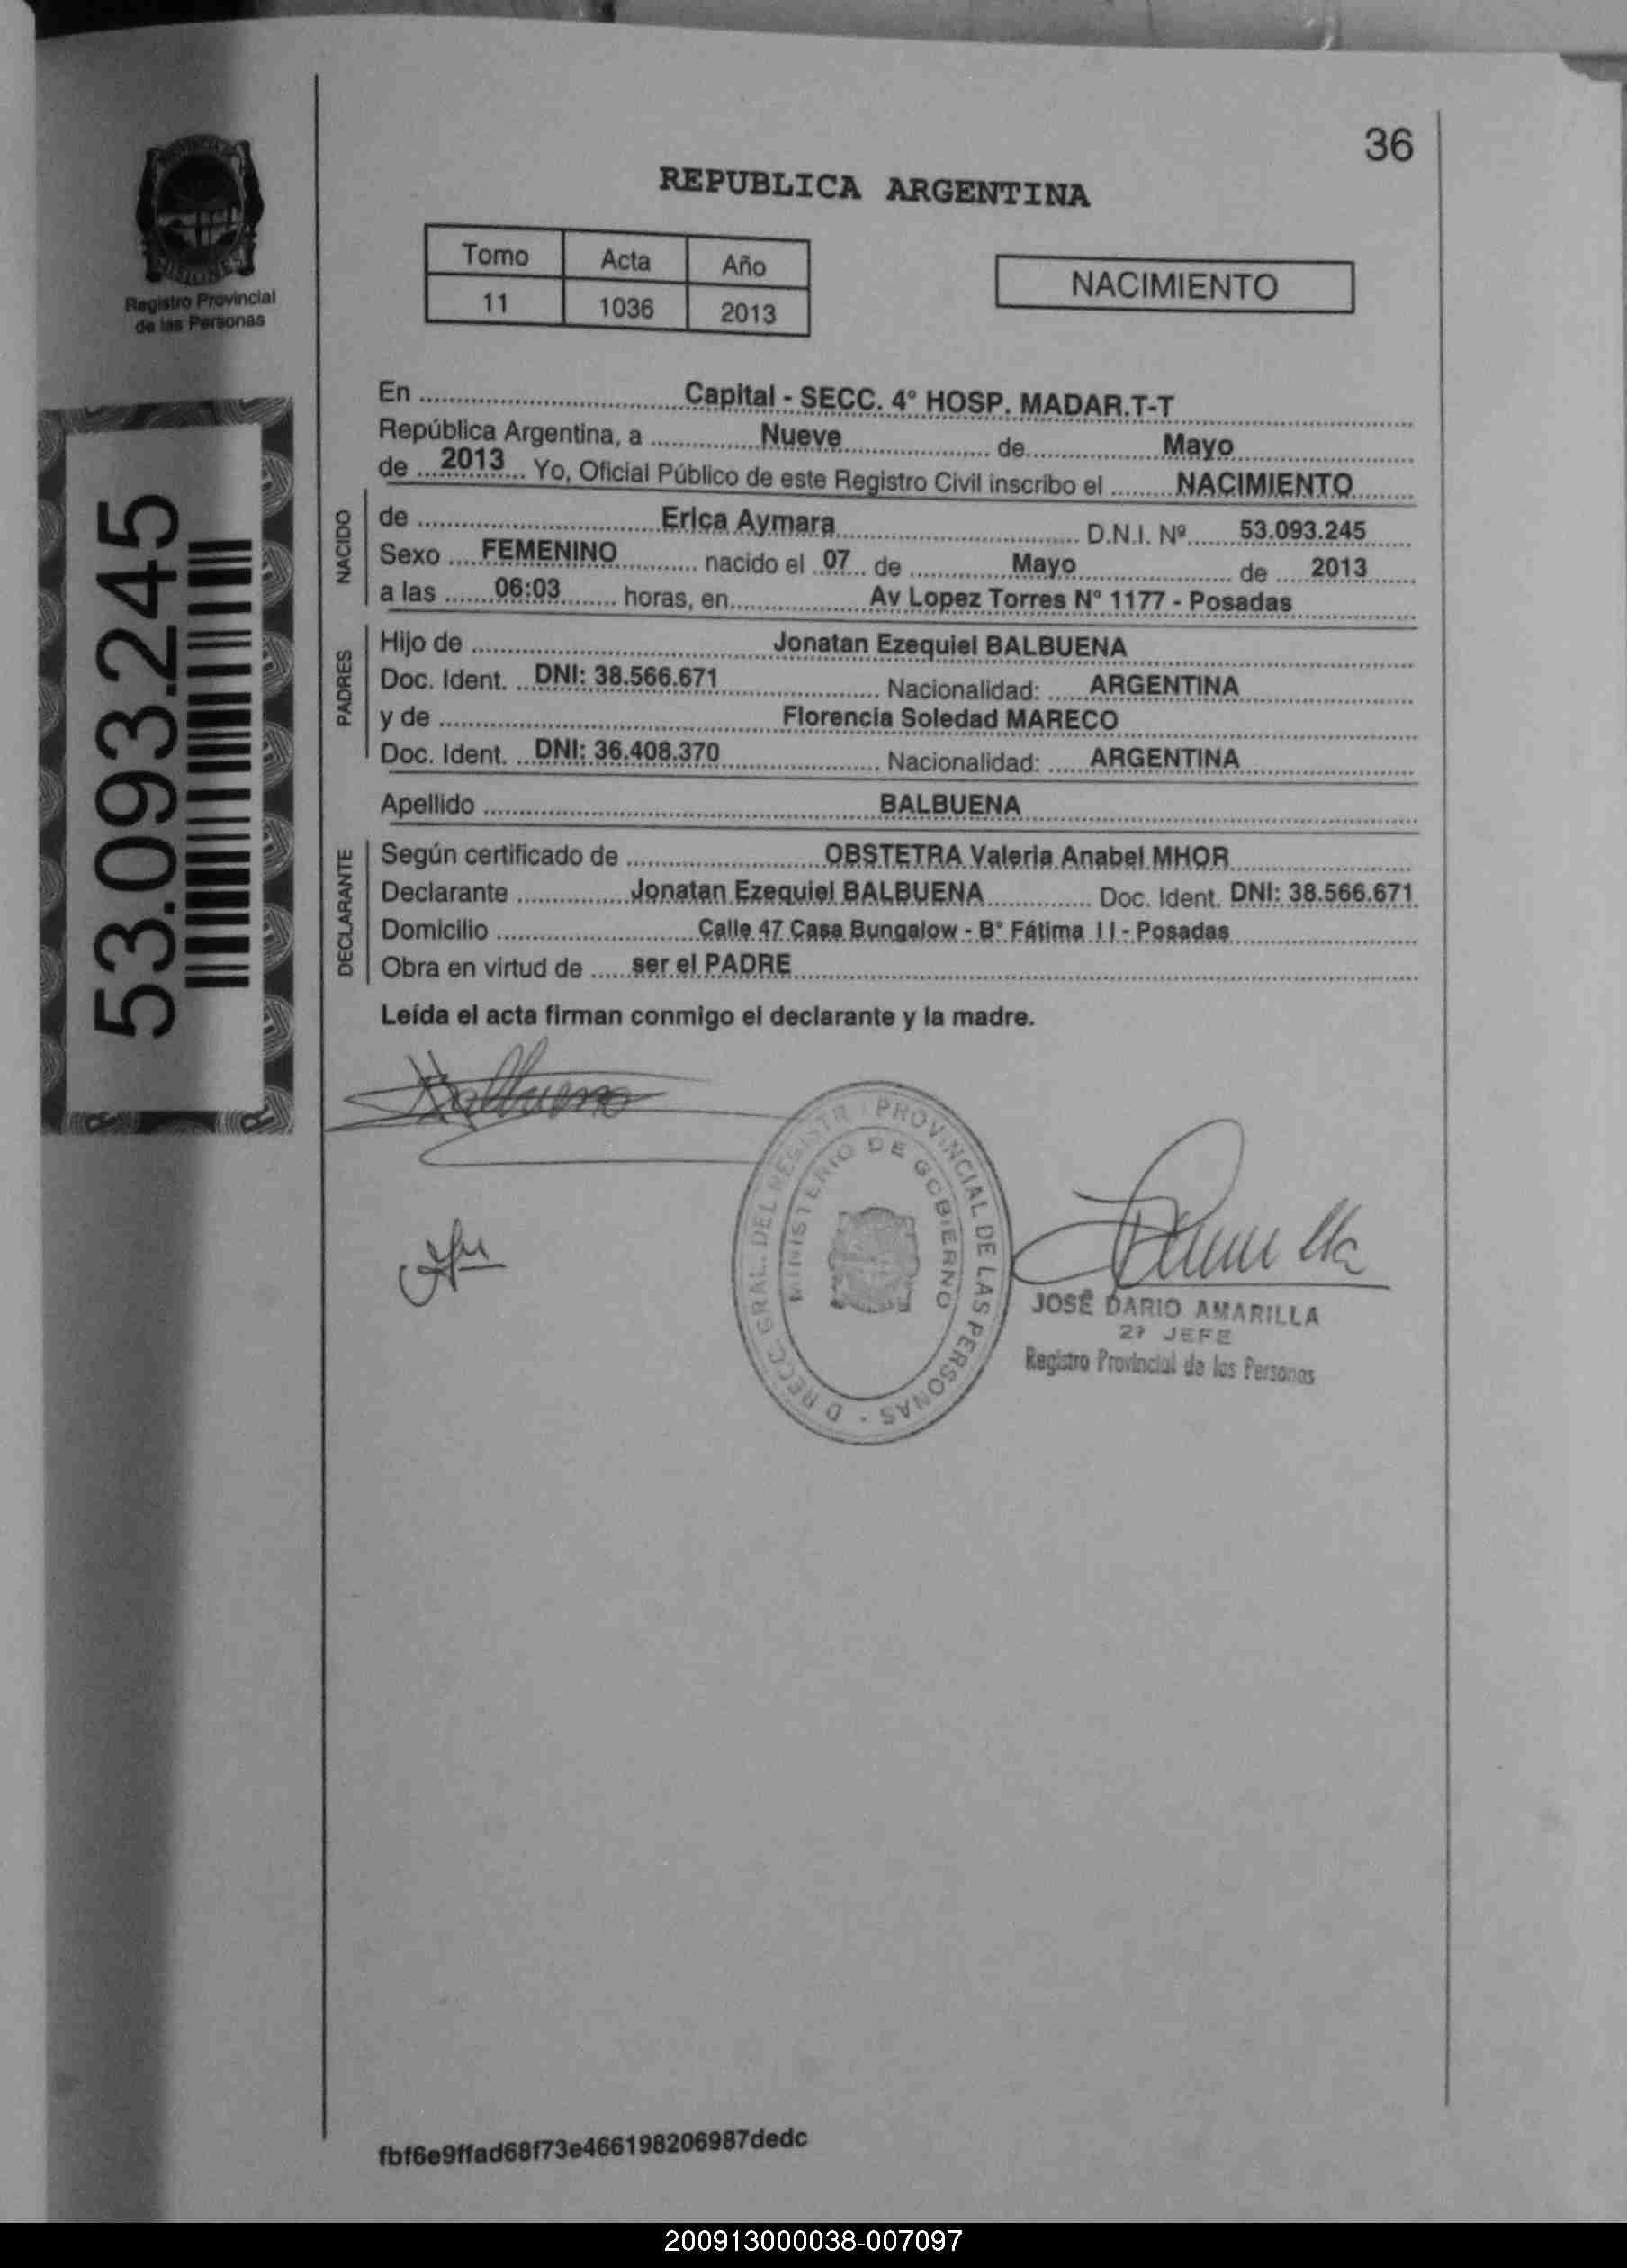 36
REPUBLICA ARGENTINA
Registro Provincial
de las Personas
Tomo Acta Año
11 1036 2013
NACIMIENTO
53.093.245
En Capital - SECC. 4° HOSP. MADAR.T-T
República Argentina, a Nueve de Mayo
de 2013 Yo, Oficial Público de este Registro Civil inscribo el NACIMIENTO
NACIDO
de Erica Aymara D.N.I. Nº 53.093.245
Sexo FEMENINO nacido el 07 de Mayo de 2013
a las 06:03 horas, en Av Lopez Torres N° 1177 - Posadas
PADRES
Hijo de Jonatan Ezequiel BALBUENA
Doc. Ident. DNI: 38.566.671 Nacionalidad: ARGENTINA
y de Florencia Soledad MARECO
Doc. Ident. DNI: 36.408.370 Nacionalidad: ARGENTINA
Apellido BALBUENA
DECLARANTE
Según certificado de OBSTETRA Valeria Anabel MHOR
Declarante Jonatan Ezequiel BALBUENA Doc. Ident. DNI: 38.566.671
Domicilio Calle 47 Casa Bungalow - B° Fátima II - Posadas
Obra en virtud de ser el PADRE
Leída el acta firman conmigo el declarante y la madre.
Balbuena
PROVINCIAL DE LAS PERSONAS
MINISTERIO DE GOBIERNO
JOSÉ DARIO AMARILLA
2º JEFE
Registro Provincial de las Personas
fbf6e9ffad68f73e466198206987dedc
200913000038-007097